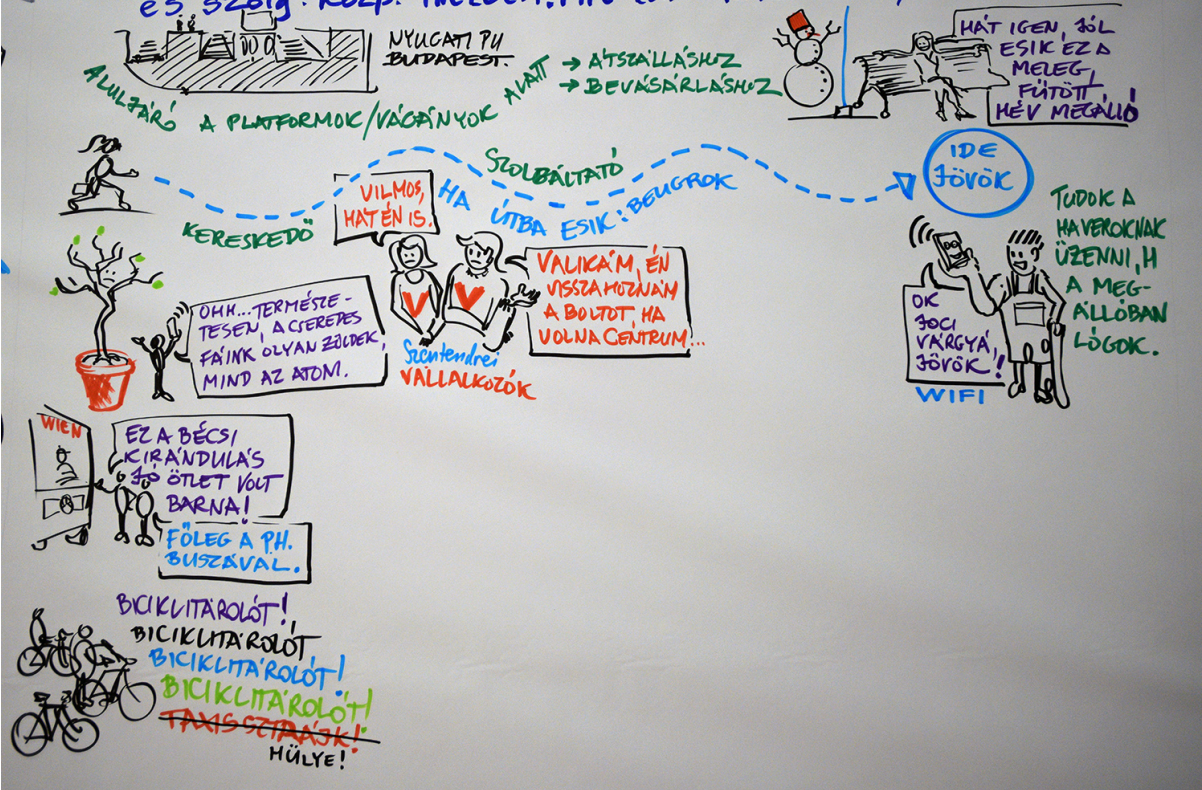 és szolg. közp.
NYUGATI PU
BUDAPEST.
ALULJÁRÓ A PLATFORMOK/VÁGÁNYOK ALATT
→ ÁTSZÁLLÁSHOZ
→ BEVÁSÁRLÁSHOZ
HÁT IGEN, JÓL
ESIK EZ A
MELEG,
FŰTÖTT
HÉV MEGÁLLÓ!
IDE
JÖVÖK
SZOLGÁLTATÓ
KERESKEDŐ
HA ÚTBA ESIK: BEUGROK
VILMOS,
HÁT ÉN IS.
VALIKÁM, ÉN
VISSZAHOZNÁM
A BOLTOT, HA
VOLNA CENTRUM...
V
V
Szentendrei
VÁLLALKOZÓK
OHH... TERMÉSZE-
TESEN, A CSEREPES
FÁINK OLYAN ZÖLDEK,
MIND AZ ATOM.
TUDOK A
HAVEROKNAK
ÜZENNI, H
A MEG-
ÁLLÓBAN
LÓGOK.
OK
JOCI
VÁRGYÁ,
JÖVÖK!
WIFI
WIEN
EZ A BÉCSI
KIRÁNDULÁS
JÓ ÖTLET VOLT
BARNA!
FŐLEG A P.H.
BUSZÁVAL.
BICIKLITÁROLÓT!
BICIKLITÁROLÓT
BICIKLITÁROLÓT!
BICIKLITÁROLÓT!
TAXISSZTRÁJK!
HÜLYE!